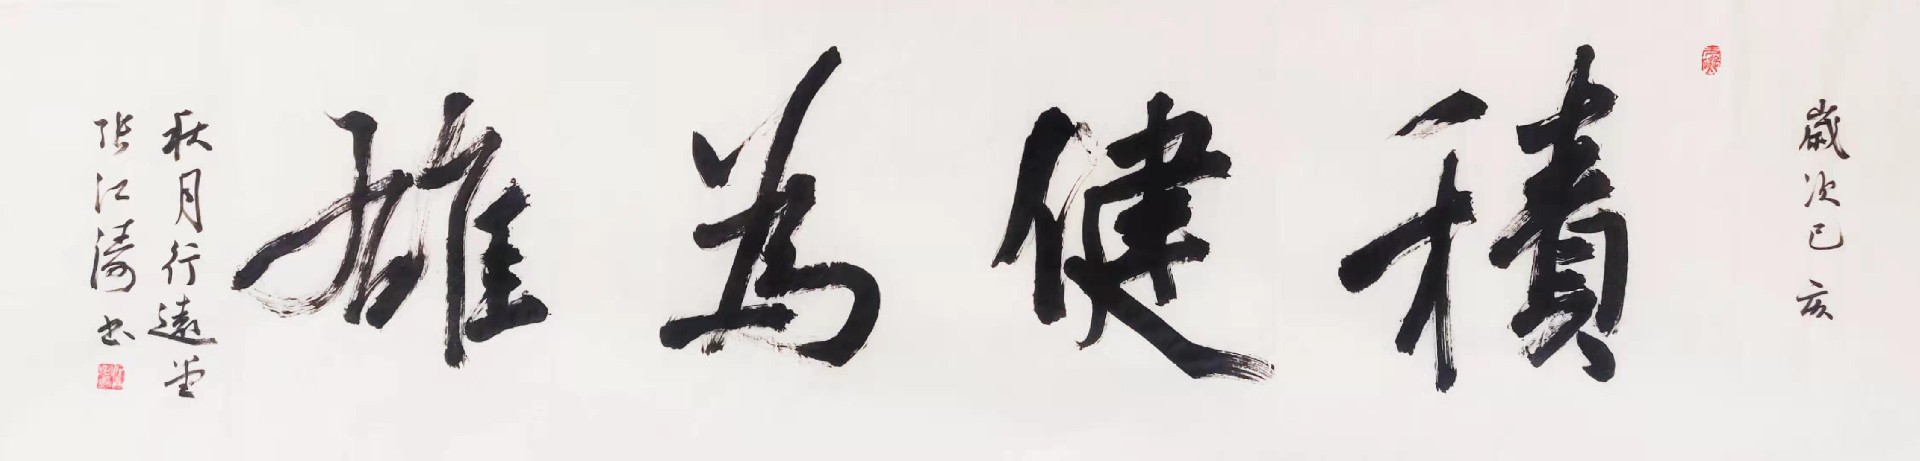 歲次己亥
積健為雄
秋月行遠堂
張江濤書